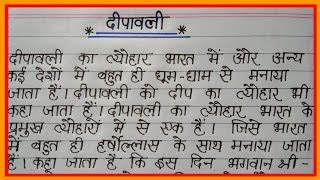 * दीपावली *
दीपावली का त्यौहार भारत में और अन्य
कई देशों में बहुत ही धूम-धाम से मनाया
जाता हैं। दीपावली को दीप का त्यौहार भी
कहा जाता हैं। दीपावली का त्यौहार भारत के
प्रमुख त्यौहारों में से एक हैं। जिसे भारत
में बहुत ही हर्षोल्लास के साथ मनाया जाता
हैं। कहा जाता हैं कि इस दिन भगवान श्री-